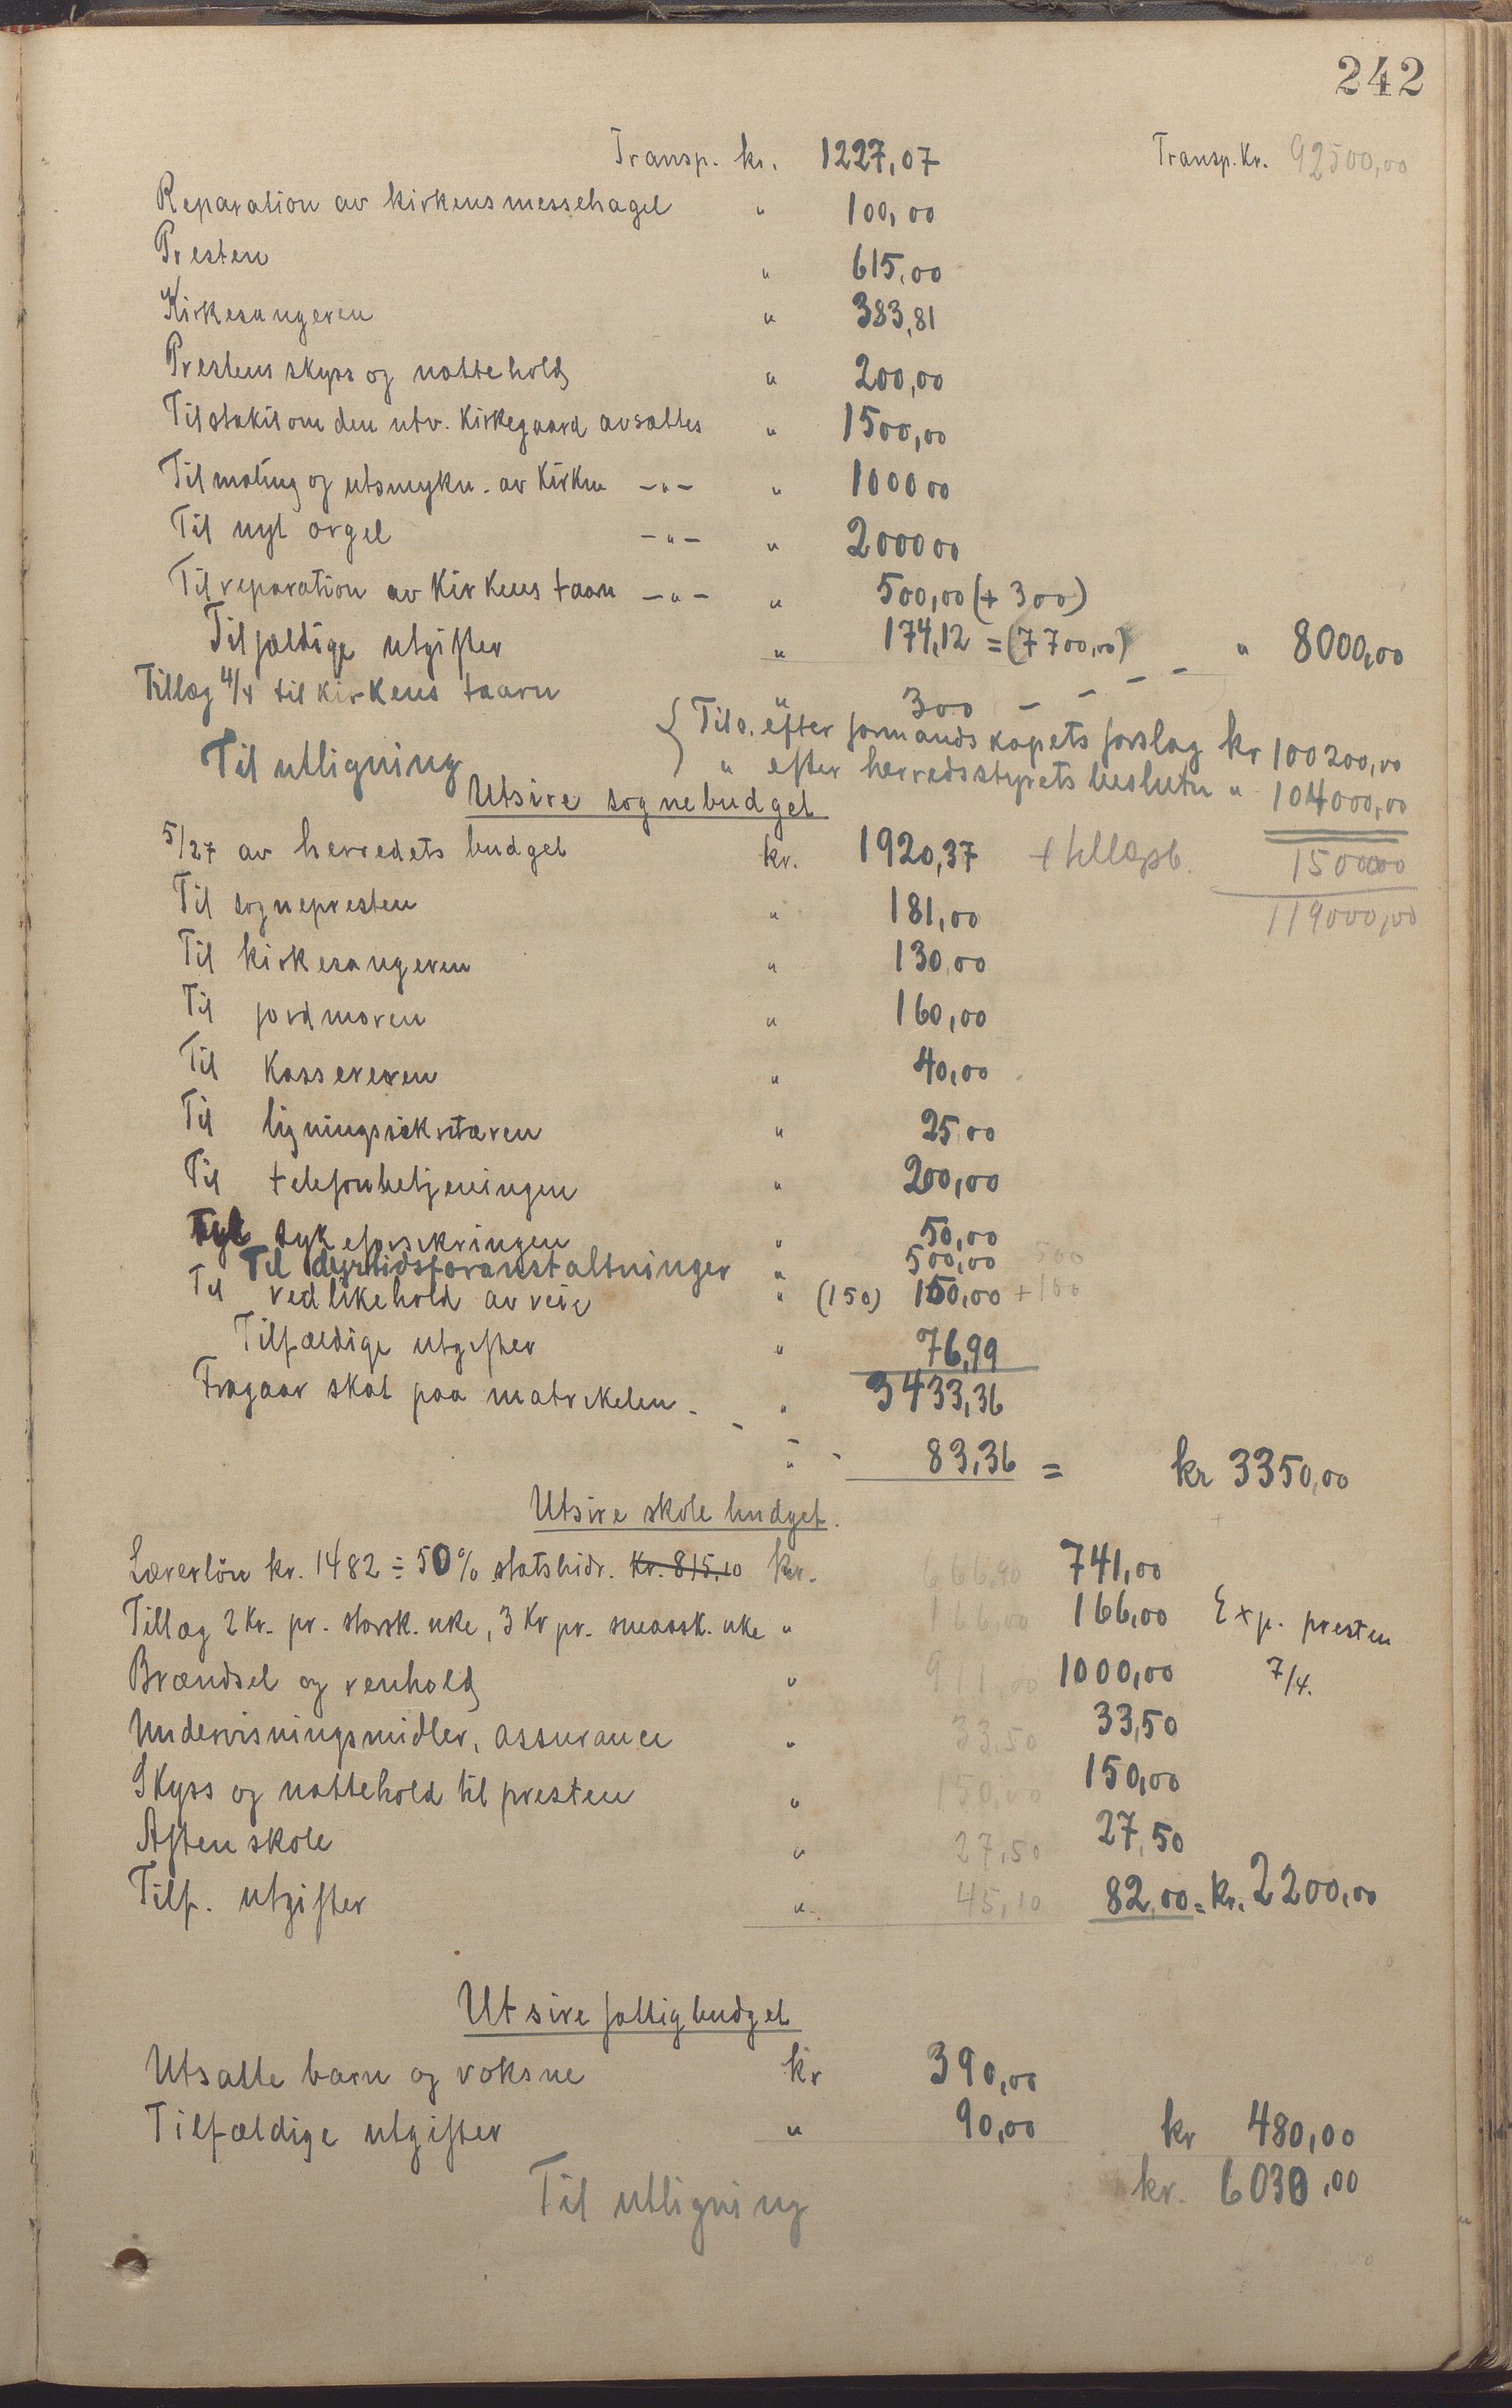 242
Transp. kr. 1227,07 Transp. Kr. 92500,00
Reparation av kirkens messehagel " 100,00
Presten " 615,00
Kirkesangeren " 383,81
Prestens skyss og nattehold " 200,00
Til stakit om den utv. Kirkegaard avsættes " 1500,00
Til maling og utsmykn. av Kirken -"- " 1000 00
Til nyt orgel -"- " 2000 00
Til reparation av Kirkens taarn -"- " 500,00 (+ 300)
Tilfældige utgifter " 174,12 = (7700,00) " 8000,00
Tillæg 4/4 til kirkens taarn " 300 - - - -
Til utligning { Tils. efter formandskapets forslag kr 100200,00
" efter herredsstyrets beslutn " 104000,00
Utsire sognebudget
5/27 av herredets budget kr. 1920,37 + tillægsb. 15000,00
119000,00
Til sognepresten " 181,00
Til kirkesangeren " 130,00
Til jordmoren " 160,00
Til Kassereren " 40,00
Til ligningssekretæren " 25,00
Til telefonbetjeningen " 200,00
Til sykeforsikringen " 50,00
Til dyrtidsforanstaltninger " 500,00 500
Til vedlikehold av veie " (150) 150,00 + 100
Tilfældige utgifter " 76,99
" 3433,36
Fragaar skat paa matrikelen - - - " - 83,36 = kr 3350,00
Utsire skolebudget.
Lærerløn kr. 1482 ÷ 50% statsbidr. Kr. 815,10 kr. 666,90 741,00
Tillæg 2 Kr. pr. storsk. uke, 3 Kr pr. smaask. uke " 166,00 166,00 Exp. presten
Brændsel og renhold " 911,00 1000,00 7/4.
Undervisningsmidler, assurance " 33,50 33,50
Skyss og nattehold til presten " 150,00 150,00
Aftenskole " 27,50 27,50
Tilf. utgifter " 45,10 82,00 = kr. 2200,00
Utsire fattigbudget
Utsatte barn og voksne kr 390,00
Tilfældige utgifter " 90,00 kr 480,00
Til utligning kr. 6030,00